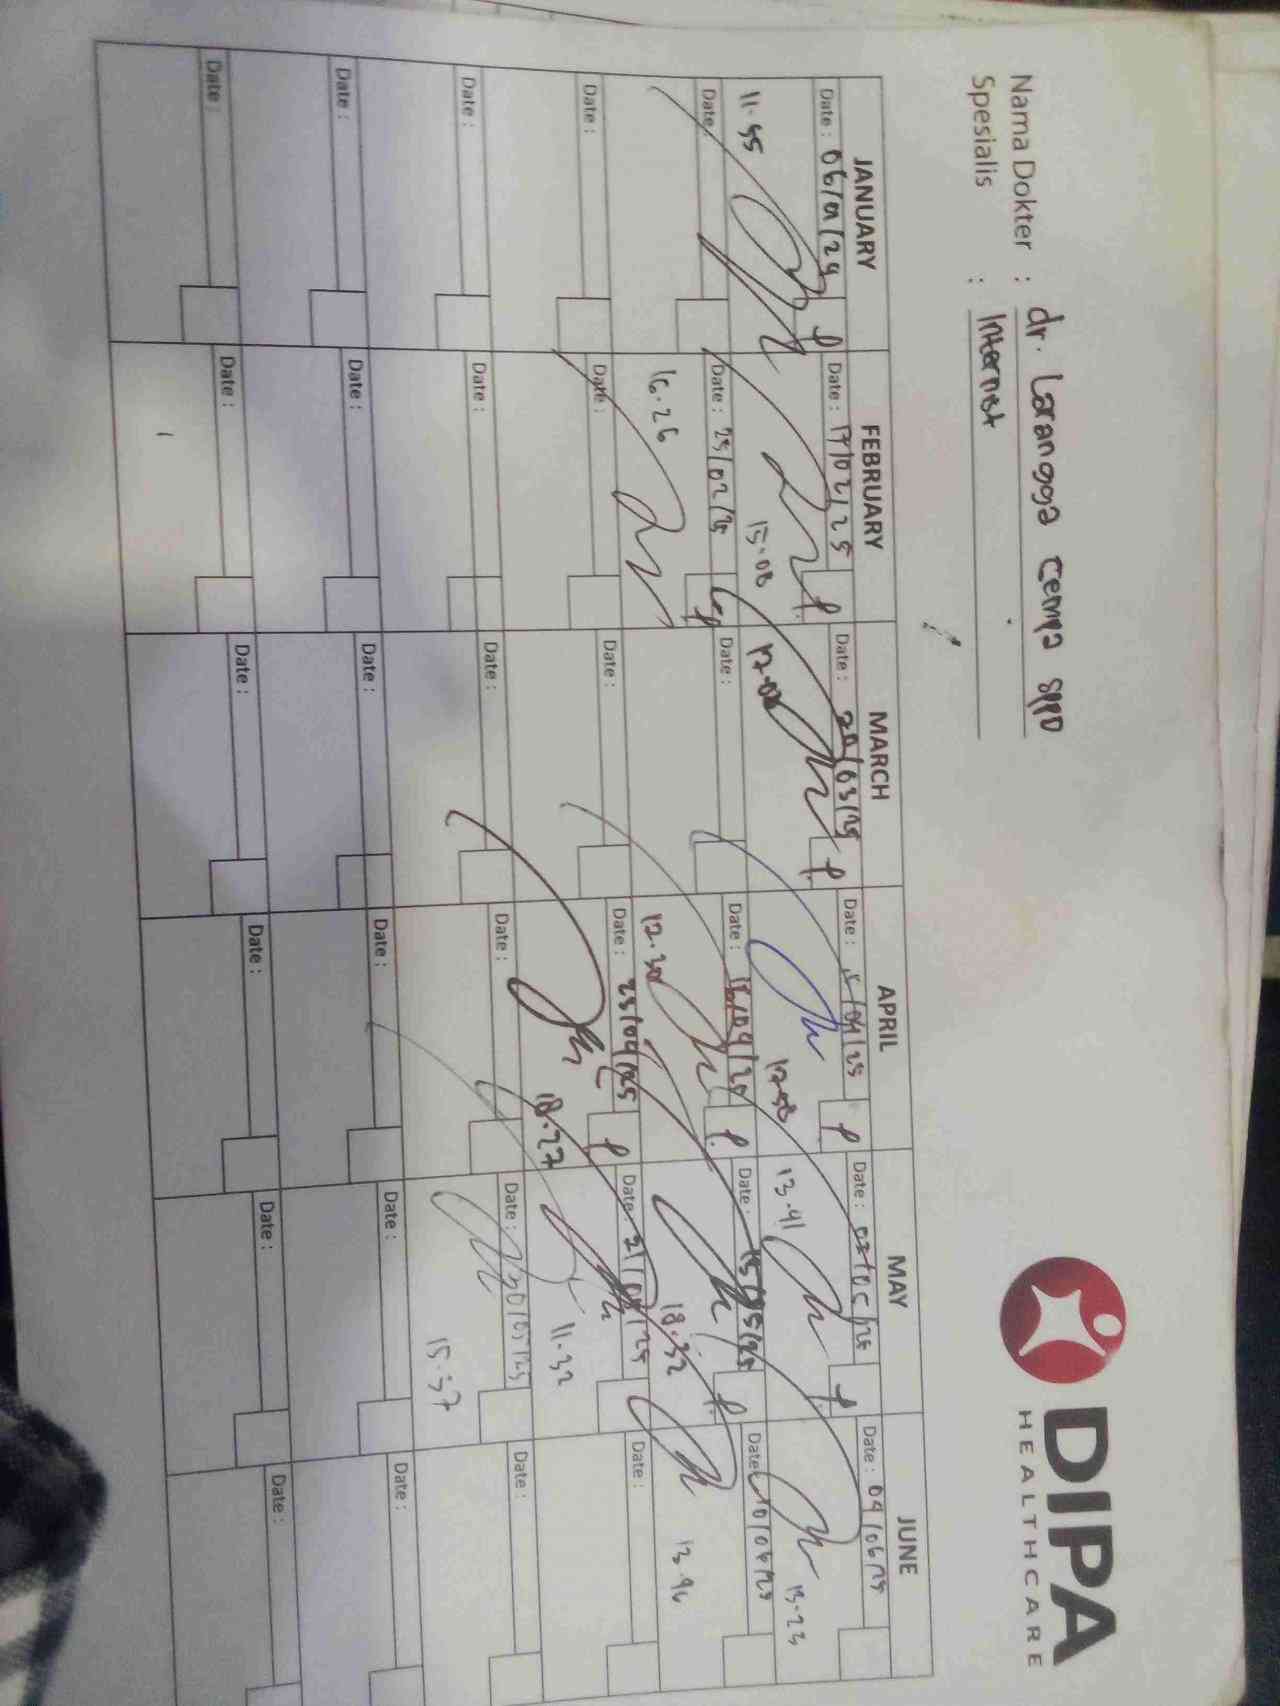 DIPA
HEALTHCARE
Nama Dokter : dr. Larangga Cempa SPPD
Spesialis : Internist
JANUARY FEBRUARY MARCH APRIL MAY JUNE
Date : 06/01/24 P Date : 17/02/25 P Date : 20/03/25 P Date : 15/04/25 P Date : 02/05/25 P Date : 04/06/25
11.55 15.08 17.02 17.50 13.41 13.23
Date : Date : 25/02/25 P Date : Date : 16/04/20 P Date : 15/05/25 P Date : 10/06/25
16.26 12.30 18.32 13.46
Date : Date : Date : Date : 25/04/25 P Date : 21/05/25 Date :
18.27 11.32
Date : Date : Date : Date : Date : 30/05/25 Date :
15.37
Date : Date : Date : Date : Date : Date :
Date : Date : Date : Date : Date : Date :